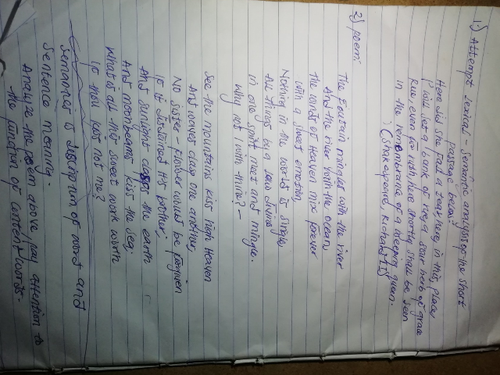 1) Attempt lexical - semantic analysis of the short
passage below:
Here did she fall a tear here in this place
I'll set a bank of rue, a sour herb of grace
Rue, even for ruth, here shortly shall be seen
in the remembrance of a weeping queen.
(Shakespeare, Richard II)
2) poem:
The Fountain mingles with the river
And the river with the ocean;
the winds of Heaven mix forever
with a sweet emotion;
Nothing in the world is single
All things by a law divine
in one spirit meet and mingle.
Why not I with thine? -
See the mountains kiss high heaven
And waves clasp one another,
No sister-flower would be forgiven
If it disdained its brother;
And sunlight clasps the earth
And moonbeams kiss the sea;
What is all this sweet work worth
If thou kiss not me?
Semantics is discipline of word and
sentence meaning.
Analyze the poem above pay attention to
the function of content-words.